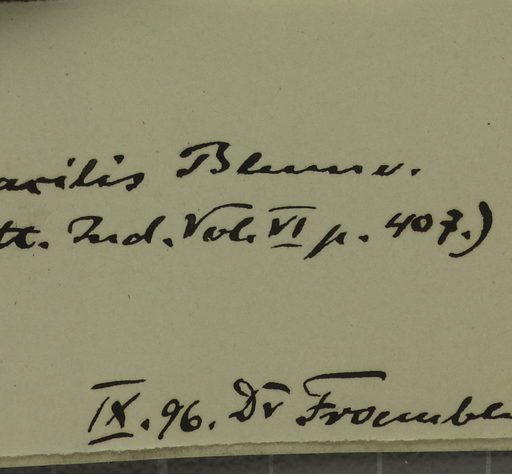 axilis Blume.
tt. Ind. Vol. VI p. 407.)
IX. 96. Dr Froembl